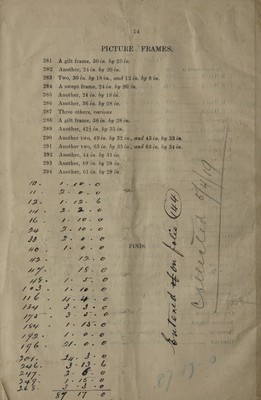 24
PICTURE FRAMES.
281 A gilt frame, 30 in. by 25 in.
282 Another, 24 in. by 20 in.
283 Two, 30 in. by 18 in., and 12 in. by 9 in.
284 A swept frame, 24 in. by 20 in.
285 Another, 24 in. by 18 in.
286 Another, 36 in. by 28 in.
287 Three others, various
288 A gilt frame, 36 in. by 28 in.
289 Another, 42½ in. by 35 in.
290 Another two, 49 in. by 32 in., and 45 in. by 33 in.
291 Another two, 65 in. by 35 in., and 63 in. by 34 in.
292 Another, 44 in. by 31 in.
293 Another, 49 in. by 28 in.
294 Another, 61 in. by 29 in.
FINIS.
10. 1. 10. 0
11. 2. 0. 0
12. 1. 12. 6
14. 2. 2. 0
16. 1. 10. 0
24 2. 10. 0
33 2. 0. 0
40. 1. 0. 0
42. 12. 0
47. 15. 0
48. 1. 5. 0
103. 1. 10. 0
116. 4. 4. 0
134 3. 3. 0
175 3. 5. 0
184 1. 15. 0
192. 1. 0. 0
196. 21. 0. 0
201. 24. 3. 0
246. 3. 13. 6
247. 3. 6. 0
249. 1. 15. 0
268. 3. 3. 0
89 17 0
Entered on folio (144)
5/4/19
87 17 0